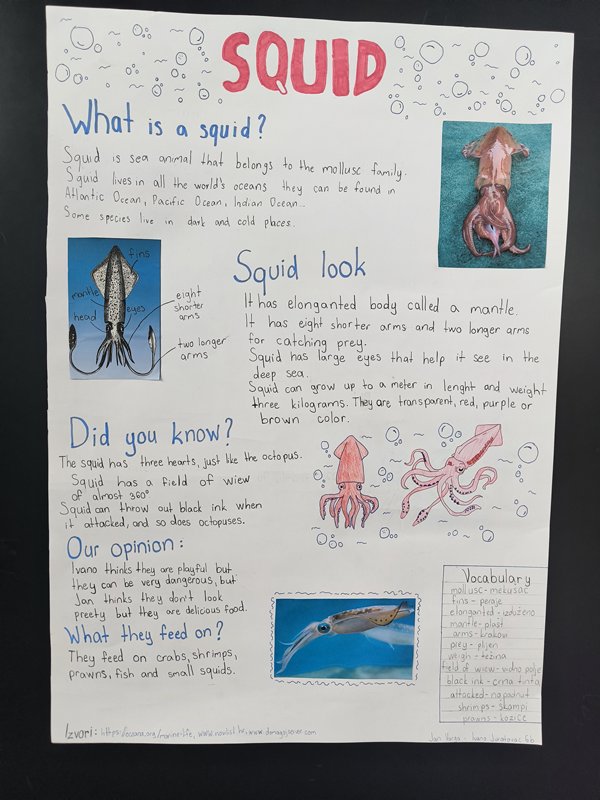 SQUID
What is a squid?
Squid is sea animal that belongs to the mollusc family.
Squid lives in all the world's oceans they can be found in
Atlantic Ocean, Pacific Ocean, Indian Ocean..
Some species live in dark and cold places.
fins
mantle
head
eyes
eight
shorter
arms
two longer
arms
Squid look
It has elonganted body called a mantle.
It has eight shorter arms and two longer arms
for catching prey.
Squid has large eyes that help it see in the
deep sea.
Squid can grow up to a meter in lenght and weight
three kilograms. They are transparent, red, purple or
brown color.
Did you know?
The squid has three hearts, just like the octopus.
Squid has a field of wiew
of almost 360°
Squid can throw out black ink when
it attacked, and so does octopuses.
Our opinion:
Ivano thinks they are playful but
they can be very dangerous, but
Jan thinks they don't look
preety but they are delicious food.
What they feed on?
They feed on crabs, shrimps,
prawns, fish and small squids.
Vocabulary
mollusc - mekušac
fins - peraje
elonganted - izduženo
mantle - plašt
arms - krakovi
prey - plijen
weigh - težina
field of wiew - vidno polje
black ink - crna tinta
attacked - napadnut
shrimps - škampi
prawns - kozice
Izvori: https://oceana.org/marine-life, www.novilist.hr,
Jan - Ivano 6b